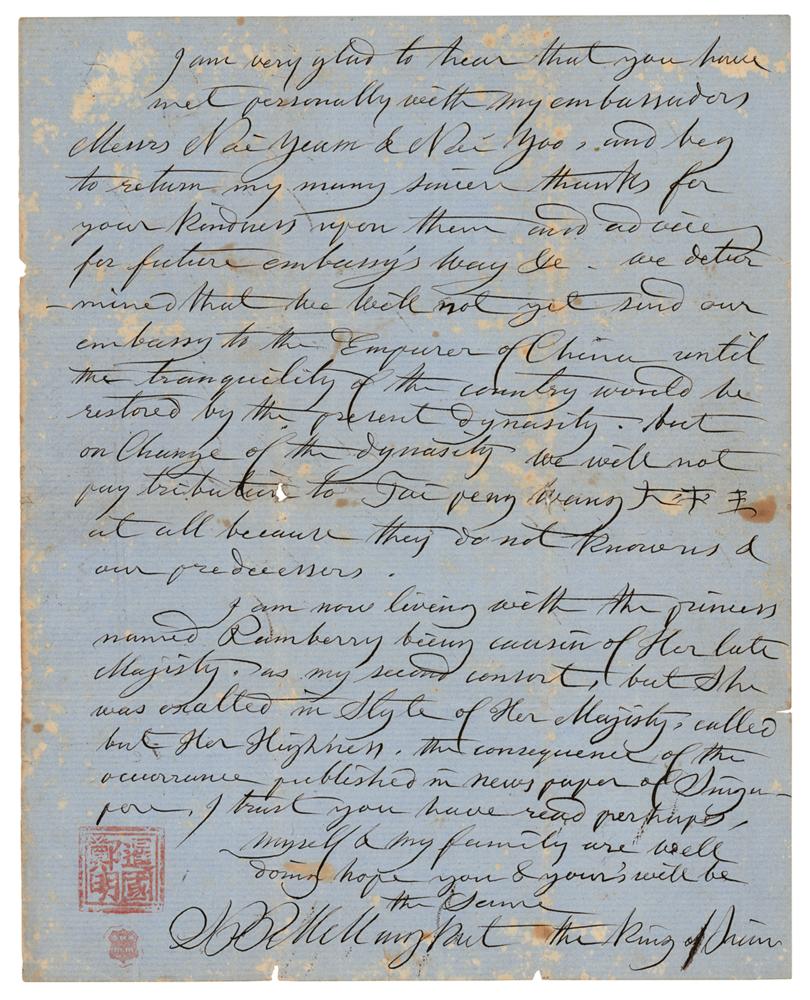 I am very glad to hear that you have
met personally with my embassadors
Messrs Nai Yeam & Nai Yoo, and beg
to return my many sincere thanks for
your kindness upon them and advice
for future embassy's way &c - we deter
-mined that we will not yet send our
embassy to the Empurer of China until
the tranquility of the country would be
restored by the present dynasity. but
on Change of the dynasity we will not
pay tribution to Tai peng wang 太平王
at all because they do not know us &
our predecessers.
I am now living with the princess
named Ramberry being causin of Her late
Majisty. as my second consort, but She
was exalted in Style of Her Majisty, called
but Her Highness. the consequence of the
occurrance published in newspaper of Singa-
pore, I trust you have read perhaps,
myself & my family are well
doing hope you & your's will be
the Same
the King of Siam
暹國
鄭明